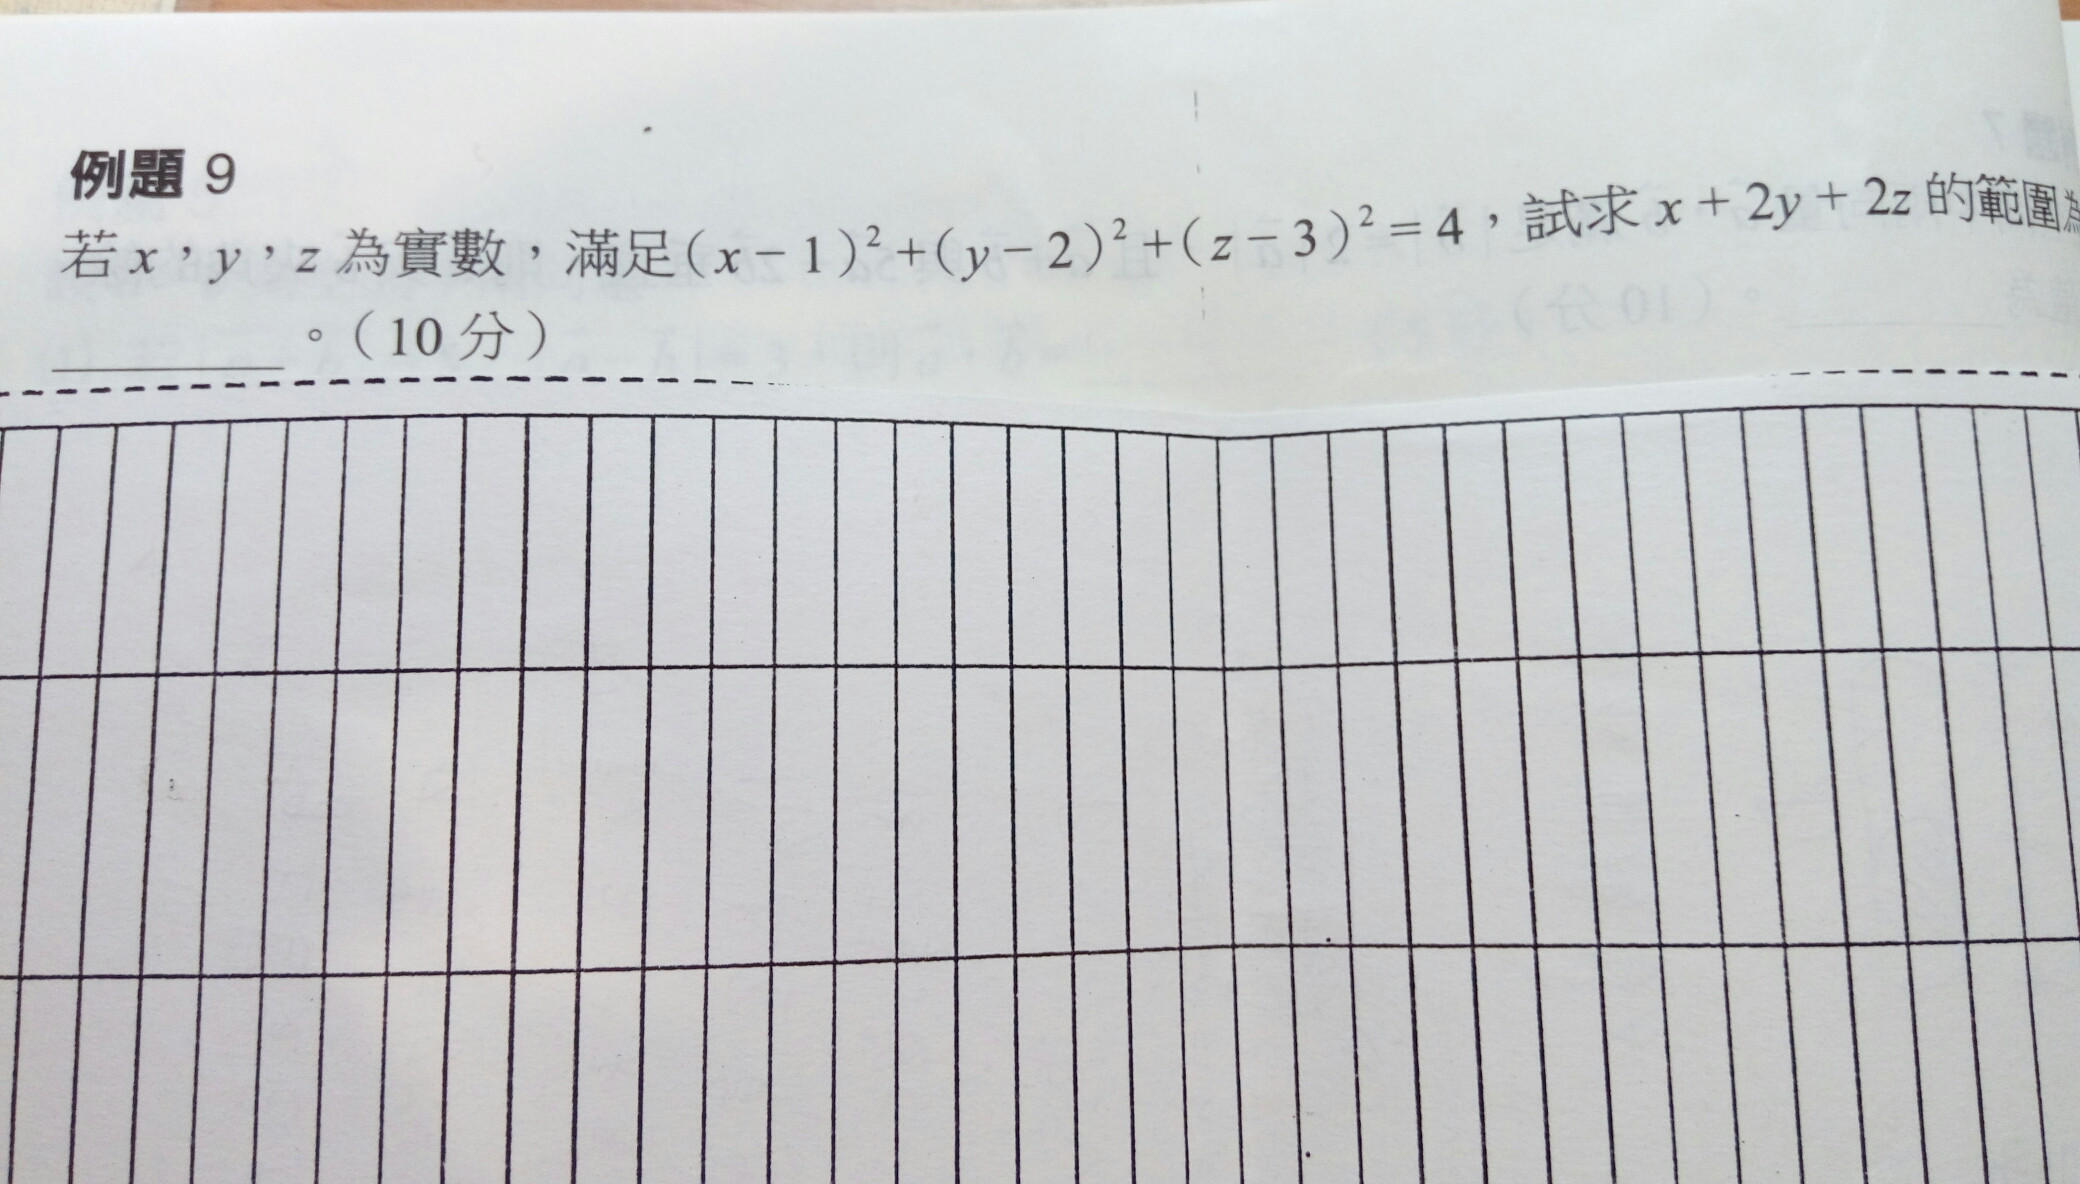 例題 9
若 x，y，z 為實數，滿足(x－1)²＋(y－2)²＋(z－3)²＝4，試求 x＋2y＋2z 的範圍為
。（10 分）